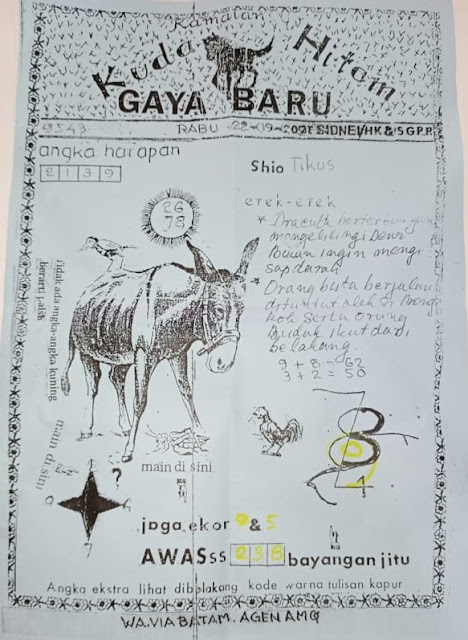 Ramalan
Kuda Hitam
GAYA BARU
9543 RABU 22-09-2021 SIDNEI/HK & SGP.P.
angka harapan
2139
Shio Tikus
26
78
erek-erek
* Dracula berterbangan
mengelilingi Dewi
Bulan ingin mengi
sap darah
* Orang buta berjalan
dituntut oleh si Bong
kok serta orang
Budak ikut dari
belakang.
9 + 8 = 62
3 + 2 = 50
tidak ada angka-angka kuning
berarti palsu
main di sini
main di sini
?
jaga ekor 9 & 5
AWASss 238 bayangan jitu
Angka ekstra lihat dibelakang kode warna tulisan kapur
WA.VIA BATAM. AGEN AMQ